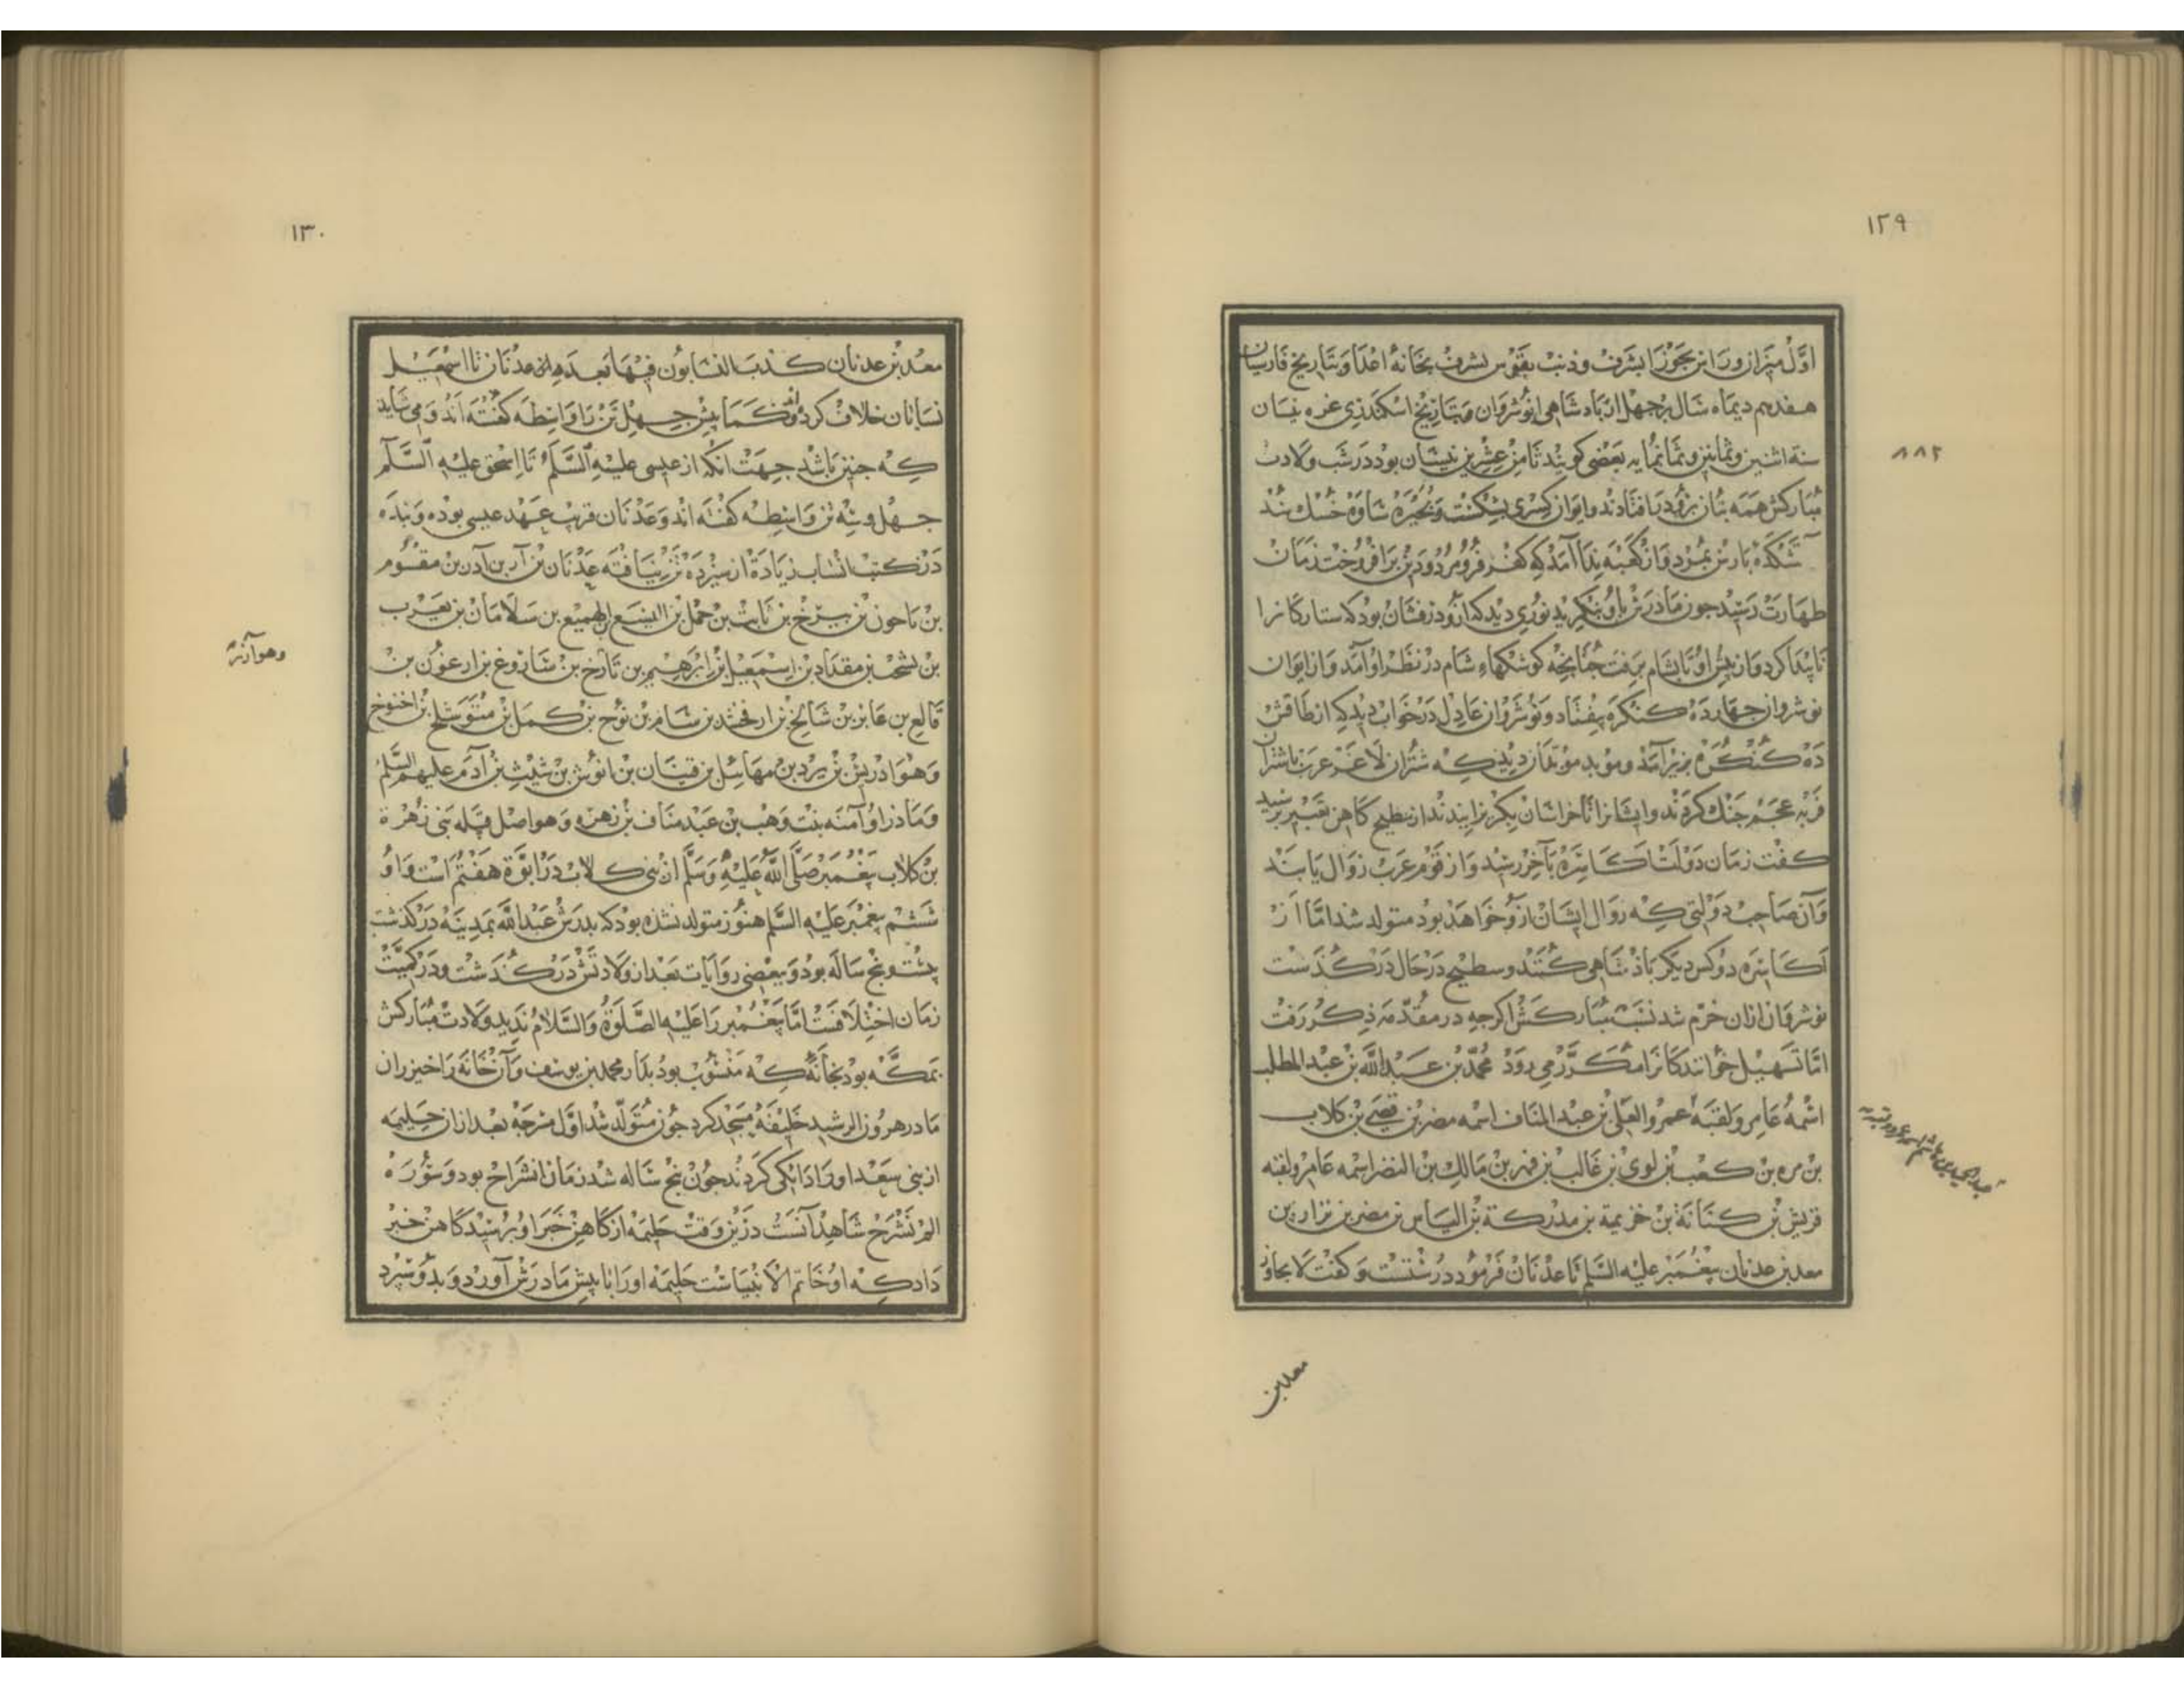 ١٢٩
اول میزان وراس بجوزا بشرف وذنب بقوس بشرف بخانه اعدا وبتاریخ فارسیان
هفدهم دیماه سال برجهل از باد شاهی انوشروان وبتاریخ اسکندری غره نیسان
سنة اثنین وثمانین وثمانمایه بعضی کویند ثامن عشرین نیسان بود در شب ولادت
٨٨٢
مبارکش همه بتان برو در افتادند وایوان کسری بشکست وبحیره ساوه خشک شد
آتشکده بارس بمرد واز کعبه ندا آمد که کفر فرو مرد ودین برافروخت زمان
طهارت رسید جون مادرش باو بنکرید نوری دید که ازو درفشان بود که ستارکانرا
نابیدا کرد واز بیش او تا بشام برفت جنانجه کوشکهاء شام در نظر او آمد واز ایوان
نوشروان جهارده کنکره بیفتاد ونوشروان عادل در خواب دید که از طاقش
ده کنکره بزیر آمد وموبد موبدان دید که شتران لاغر عرب باشتران
فربه عجم جنك کردند وایشانرا تا خراسان بکریزانیدند از سطیح کاهن تعبیر برسید
کفت زمان دولت اکاسره بآخر رسید واز قوم عرب زوال یابند
وآن صاحب دولتی که زوال ایشان ازو خواهد بود متولد شد اما از
اکاسره دو کس دیکر باذشاهی کنند وسطیح در حال در کذشت
نوشروان ازان خرم شد نسب مبارکش اکرجه در مقدمه ذکر رفت
اما تسهیل خوانندکانرا مکرر می رود محمد بن عبدالله بن عبدالمطلب
اسمه عامر ولقبه عمرو العلی بن عبد المناف اسمه مضر بن قصی بن کلاب
بن مره بن کعب بن لوی بن غالب بن فهر بن مالك بن النضر اسمه عامر ولقبه
قریش بن کنانة بن خزیمة بن مدرکة بن الیاس بن مضر بن نزار بن
معد بن عدنان بیغمبر علیه السلم تا عدنان فرمود درستست وکفت لا یجاوز
معد بن
١٣٠
معد بن عدنان کذب النسابون فیها بعده از عدنان تا اسمعیل
نسابان خلاف کرده اند وکما بیش جهل تن را واسطه کفته اند ومی شاید
که جنین باشد جهت آنکه از عیسی علیه السلم تا اسحق علیه السلم
جهل وسه تن واسطه کفته اند وعدنان قرب عهد عیسی بوده وبنده
در کتب انساب زیادة از سیزده تن نیافته عدنان بن آد بن آدد بن مقوم
بن ناحون بن یرخ بن ثابت بن حمل بن الیسع الهمیع بن سلامان بن یعرب
بن یشحب بن مقداد بن اسمعیل بن ابرهیم بن تارخ بن شاروغ بن ارعون بن
وهو آزر
فالع بن عابر بن شالخ بن ارفخشد بن سام بن نوح بن کمل بن متوشلح بن اخنوخ
وهو ادریس بن یرد بن مهایل بن قینان بن انوش بن شیث بن آدم علیهم السلم
ومادر او آمنه بنت وهب بن عبد مناف بن زهره وهو اصل قبیله بنی زهرة
بن کلاب بیغمبر صلی الله علیه وسلم از بنی کلاب در ابوة هفتم است واو
ششم بیغمبر علیه السلم هنوز متولد نشده بود که بدرش عبدالله بمدینه در کذشت
بیست وبنج ساله بود وببعضی روایات بعد از ولادتش در کذشت ودر کمیت
زمان اختلافست اما بیغمبر را علیه الصلوة والسلام ندید ولادت مبارکش
بمکه بود بخانه که منسوب بود بدار محمد بن یوسف وآن خانه را خیزران
مادر هرون الرشید خلیفه مسجد کرد جون متولد شد اول مرجه بعد ازان حلیمه
از بنی سعد اورا دایکی کردند جون بنج ساله شد زمان انشراح بود وسوره
الم نشرح شاهد آنست درین وقت حلیمه از کاهن خبر او برسید کاهن خبر
داد که او خاتم الانبیاست حلیمه اورا با بیش مادرش آورد وبدو سبرد